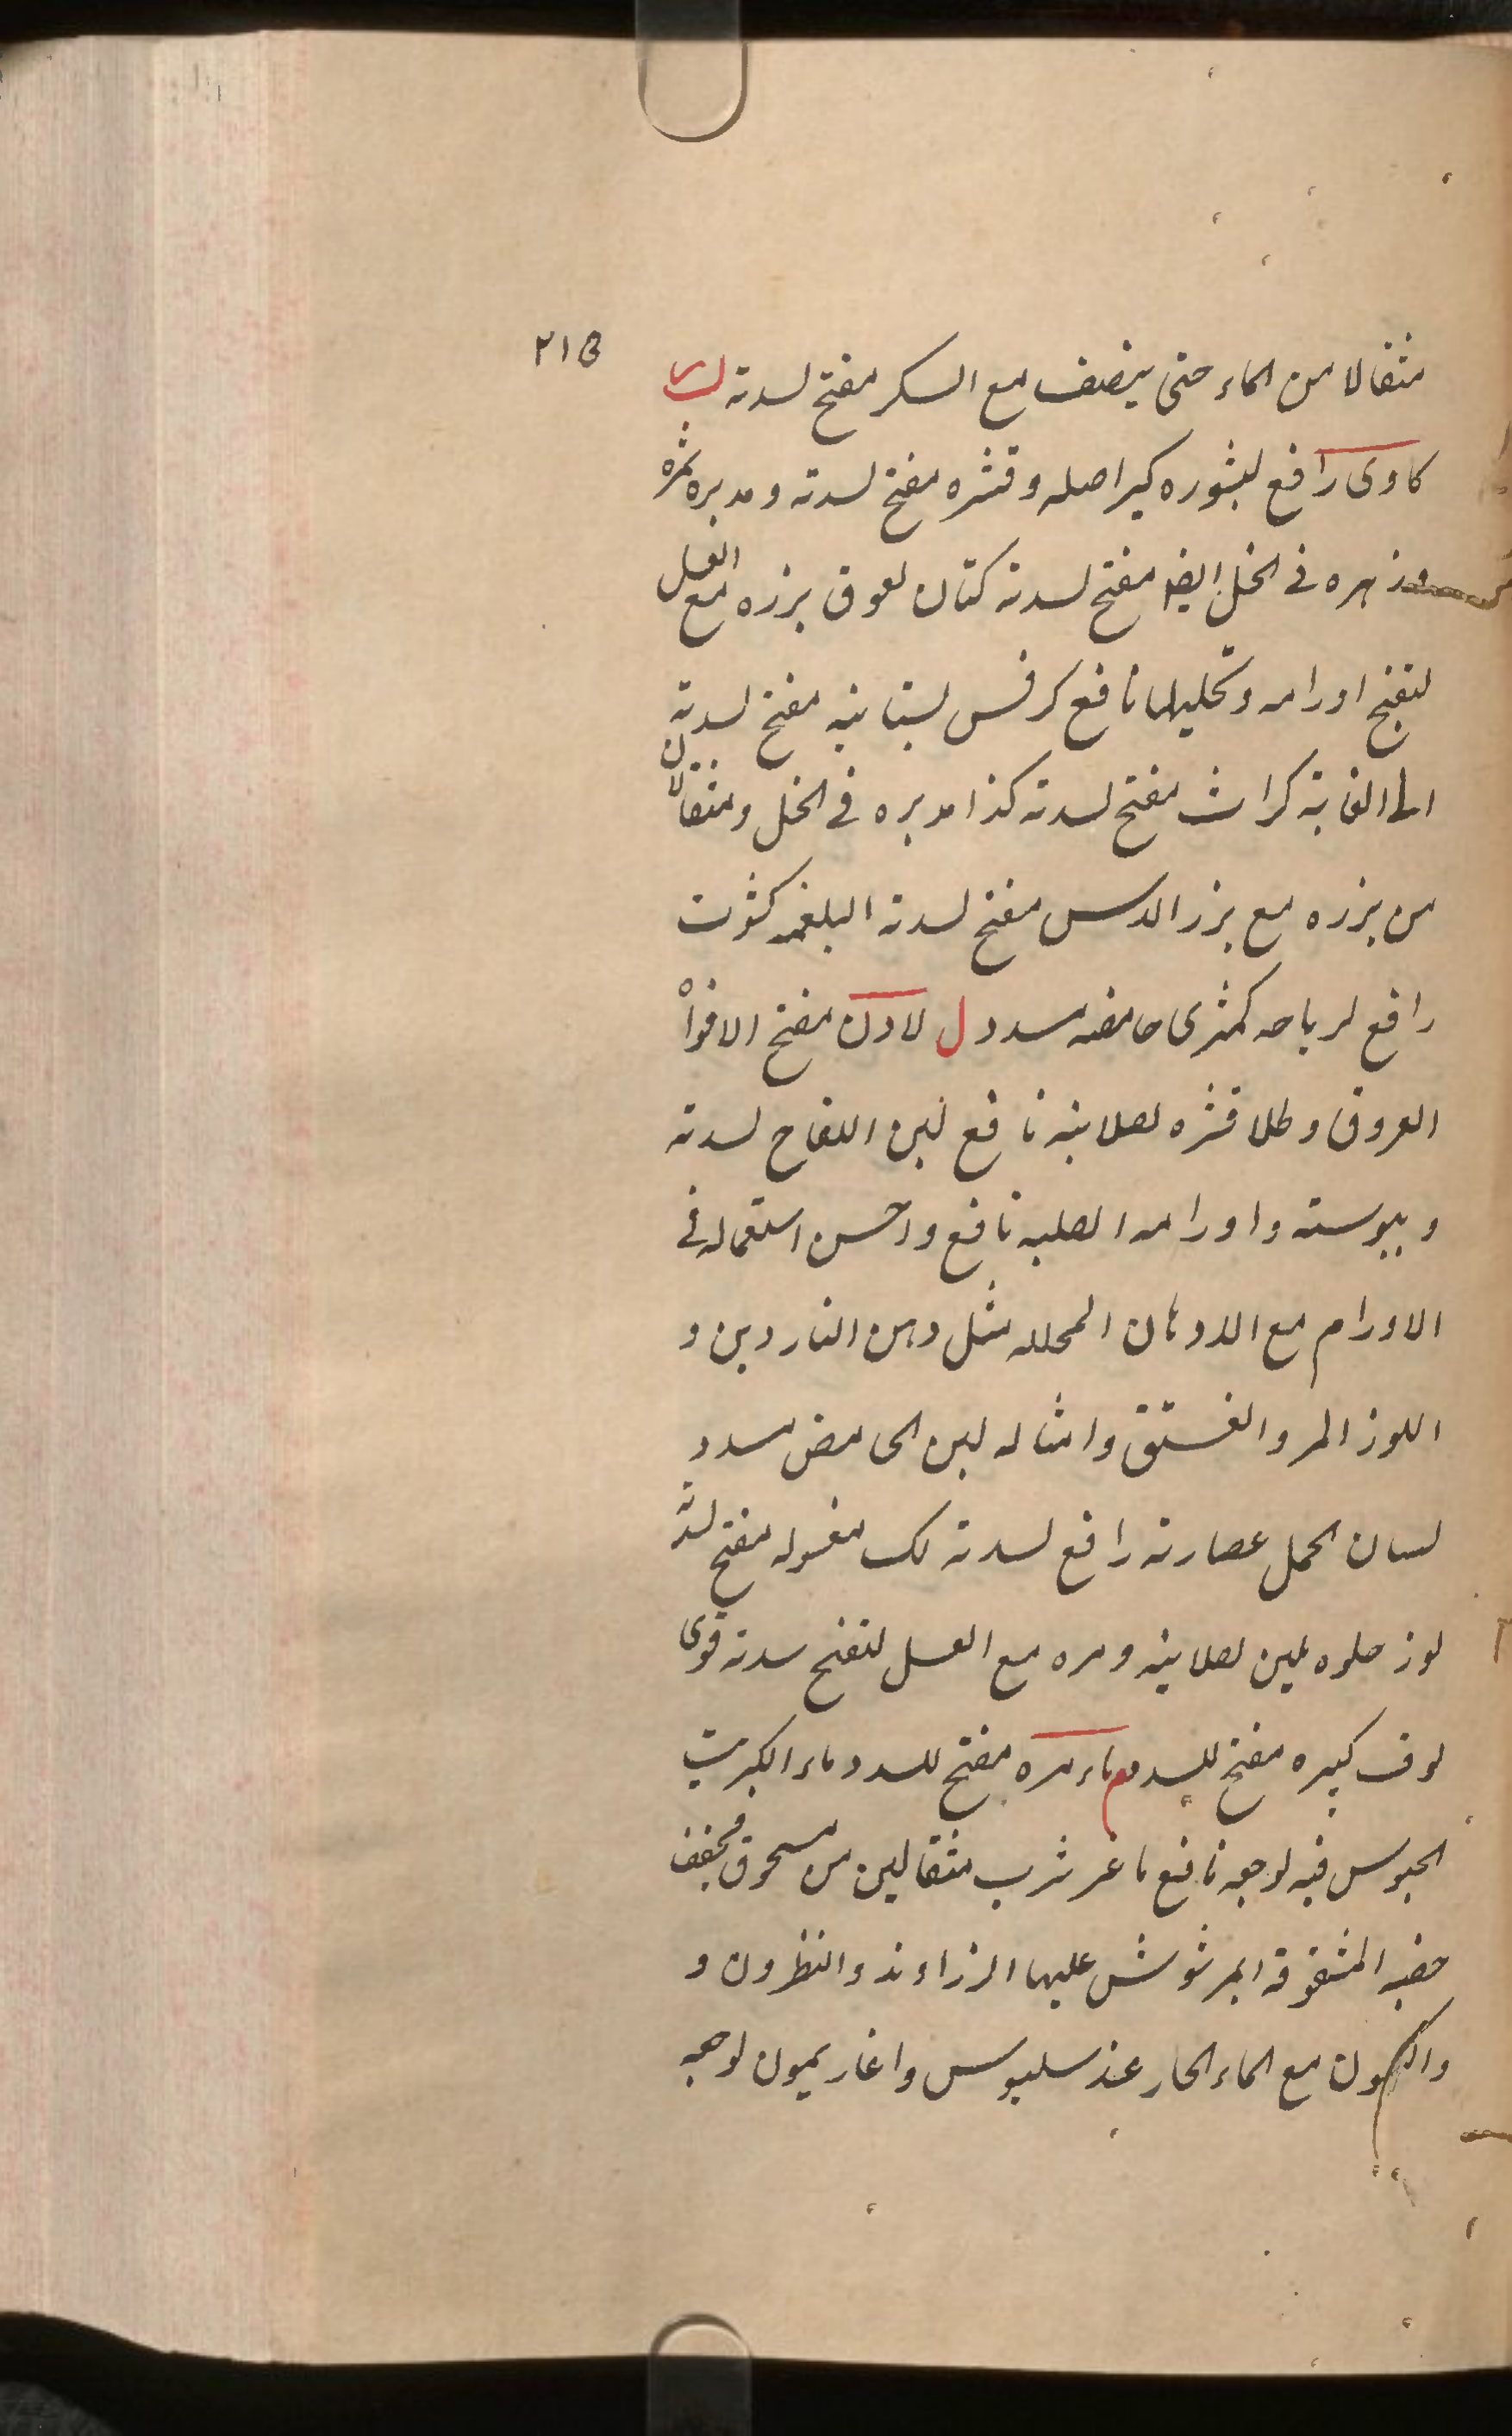 ٢١٥
مثقالا من الماء حتى ينصف مع السكر مفتح لسدته ک
كاوى رافع لبثوره كبر اصله وقشره مفتح لسدته ومدبره ثمره
وزهره فى الخل ايضا مفتح لسدته كتان لعوق بزره مع العسل
لتفتح اورامه وتحليلها نافع كرفس بستانيه مفتح لسدته
الى الغاية كراث مفتح لسدته كذا مدبره فى الخل ومثقالان
من بزره مع بزر الدس مفتح لسدته البلغميه كثوت
رافع لرياحه كمثرى حامضه مسدد ل لادن مفتح الافواه
العروق وطلا قشره لصلابته نافع لبن اللقاح لسدته
ويبوسته واورامه الصلبه نافع واحسن استعماله فى
الاورام مع الادهان المحلله مثل دهن الناردين و
اللوز المر والفستق وامثاله لبن الحامض مسدد
لسان الحمل عصارته رافع لسدته لك مغسوله مفتح لسدته
لوز حلوه ملين لصلابته ومره مع العسل لتفتح سدته قوى
لوف كبيره مفتح للسدد م ماء مره مفتح للسدد ماء الكبريت
الجلوس فيه لوجعه نافع ماعز شرب مثقالين من مسحوق مجفف
خصيه المشقوقة المرشوش عليها الزراوند والنطرون و
والكمون مع الماء الحار عند سلبوس واغاريمون لوجعه